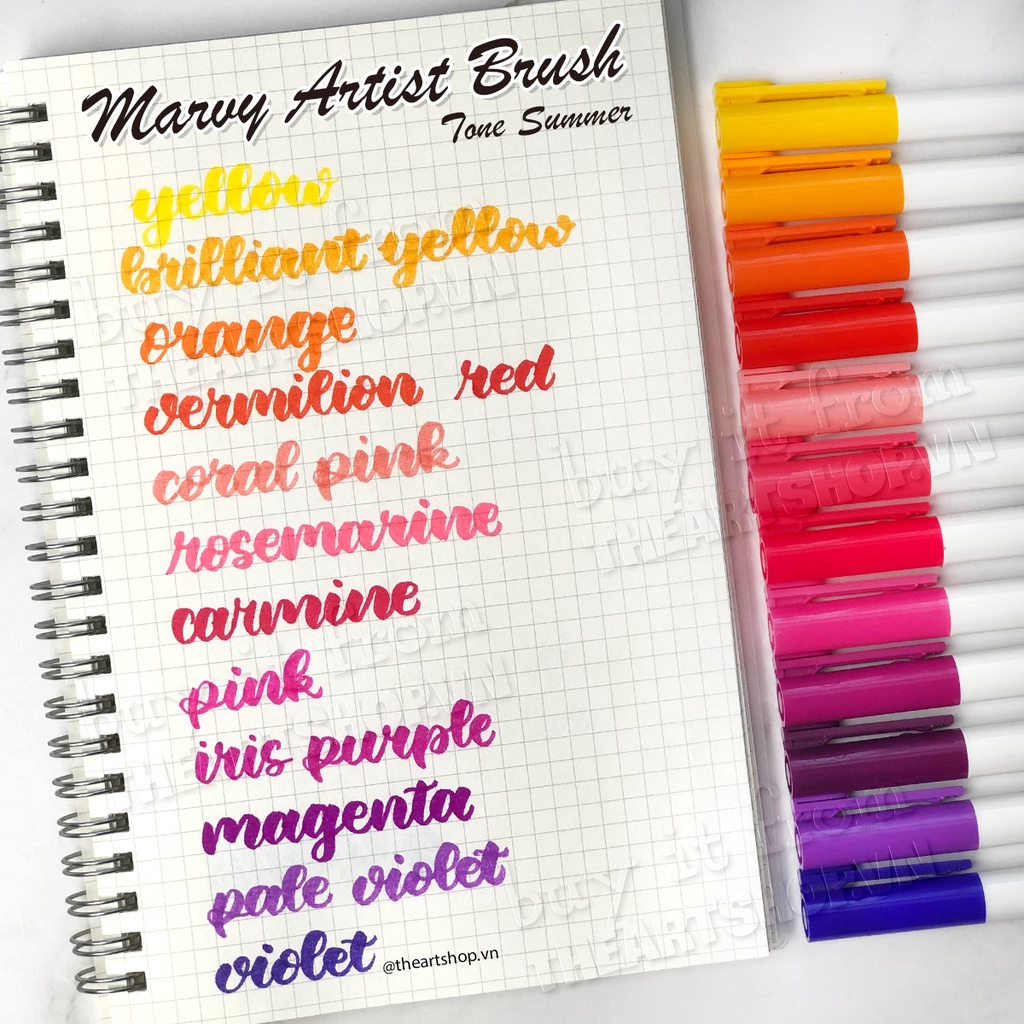 Marvy Artist Brush
Tone Summer
yellow
brilliant yellow
orange
vermilion red
coral pink
rosemarine
carmine
pink
iris purple
magenta
pale violet
violet
@theartshop.vn
buy it from
THEARTSHOP.VN
buy it from
THEARTSHOP.VN
buy it from
THEARTSHOP.VN
buy it from
THEARTSHOP.VN